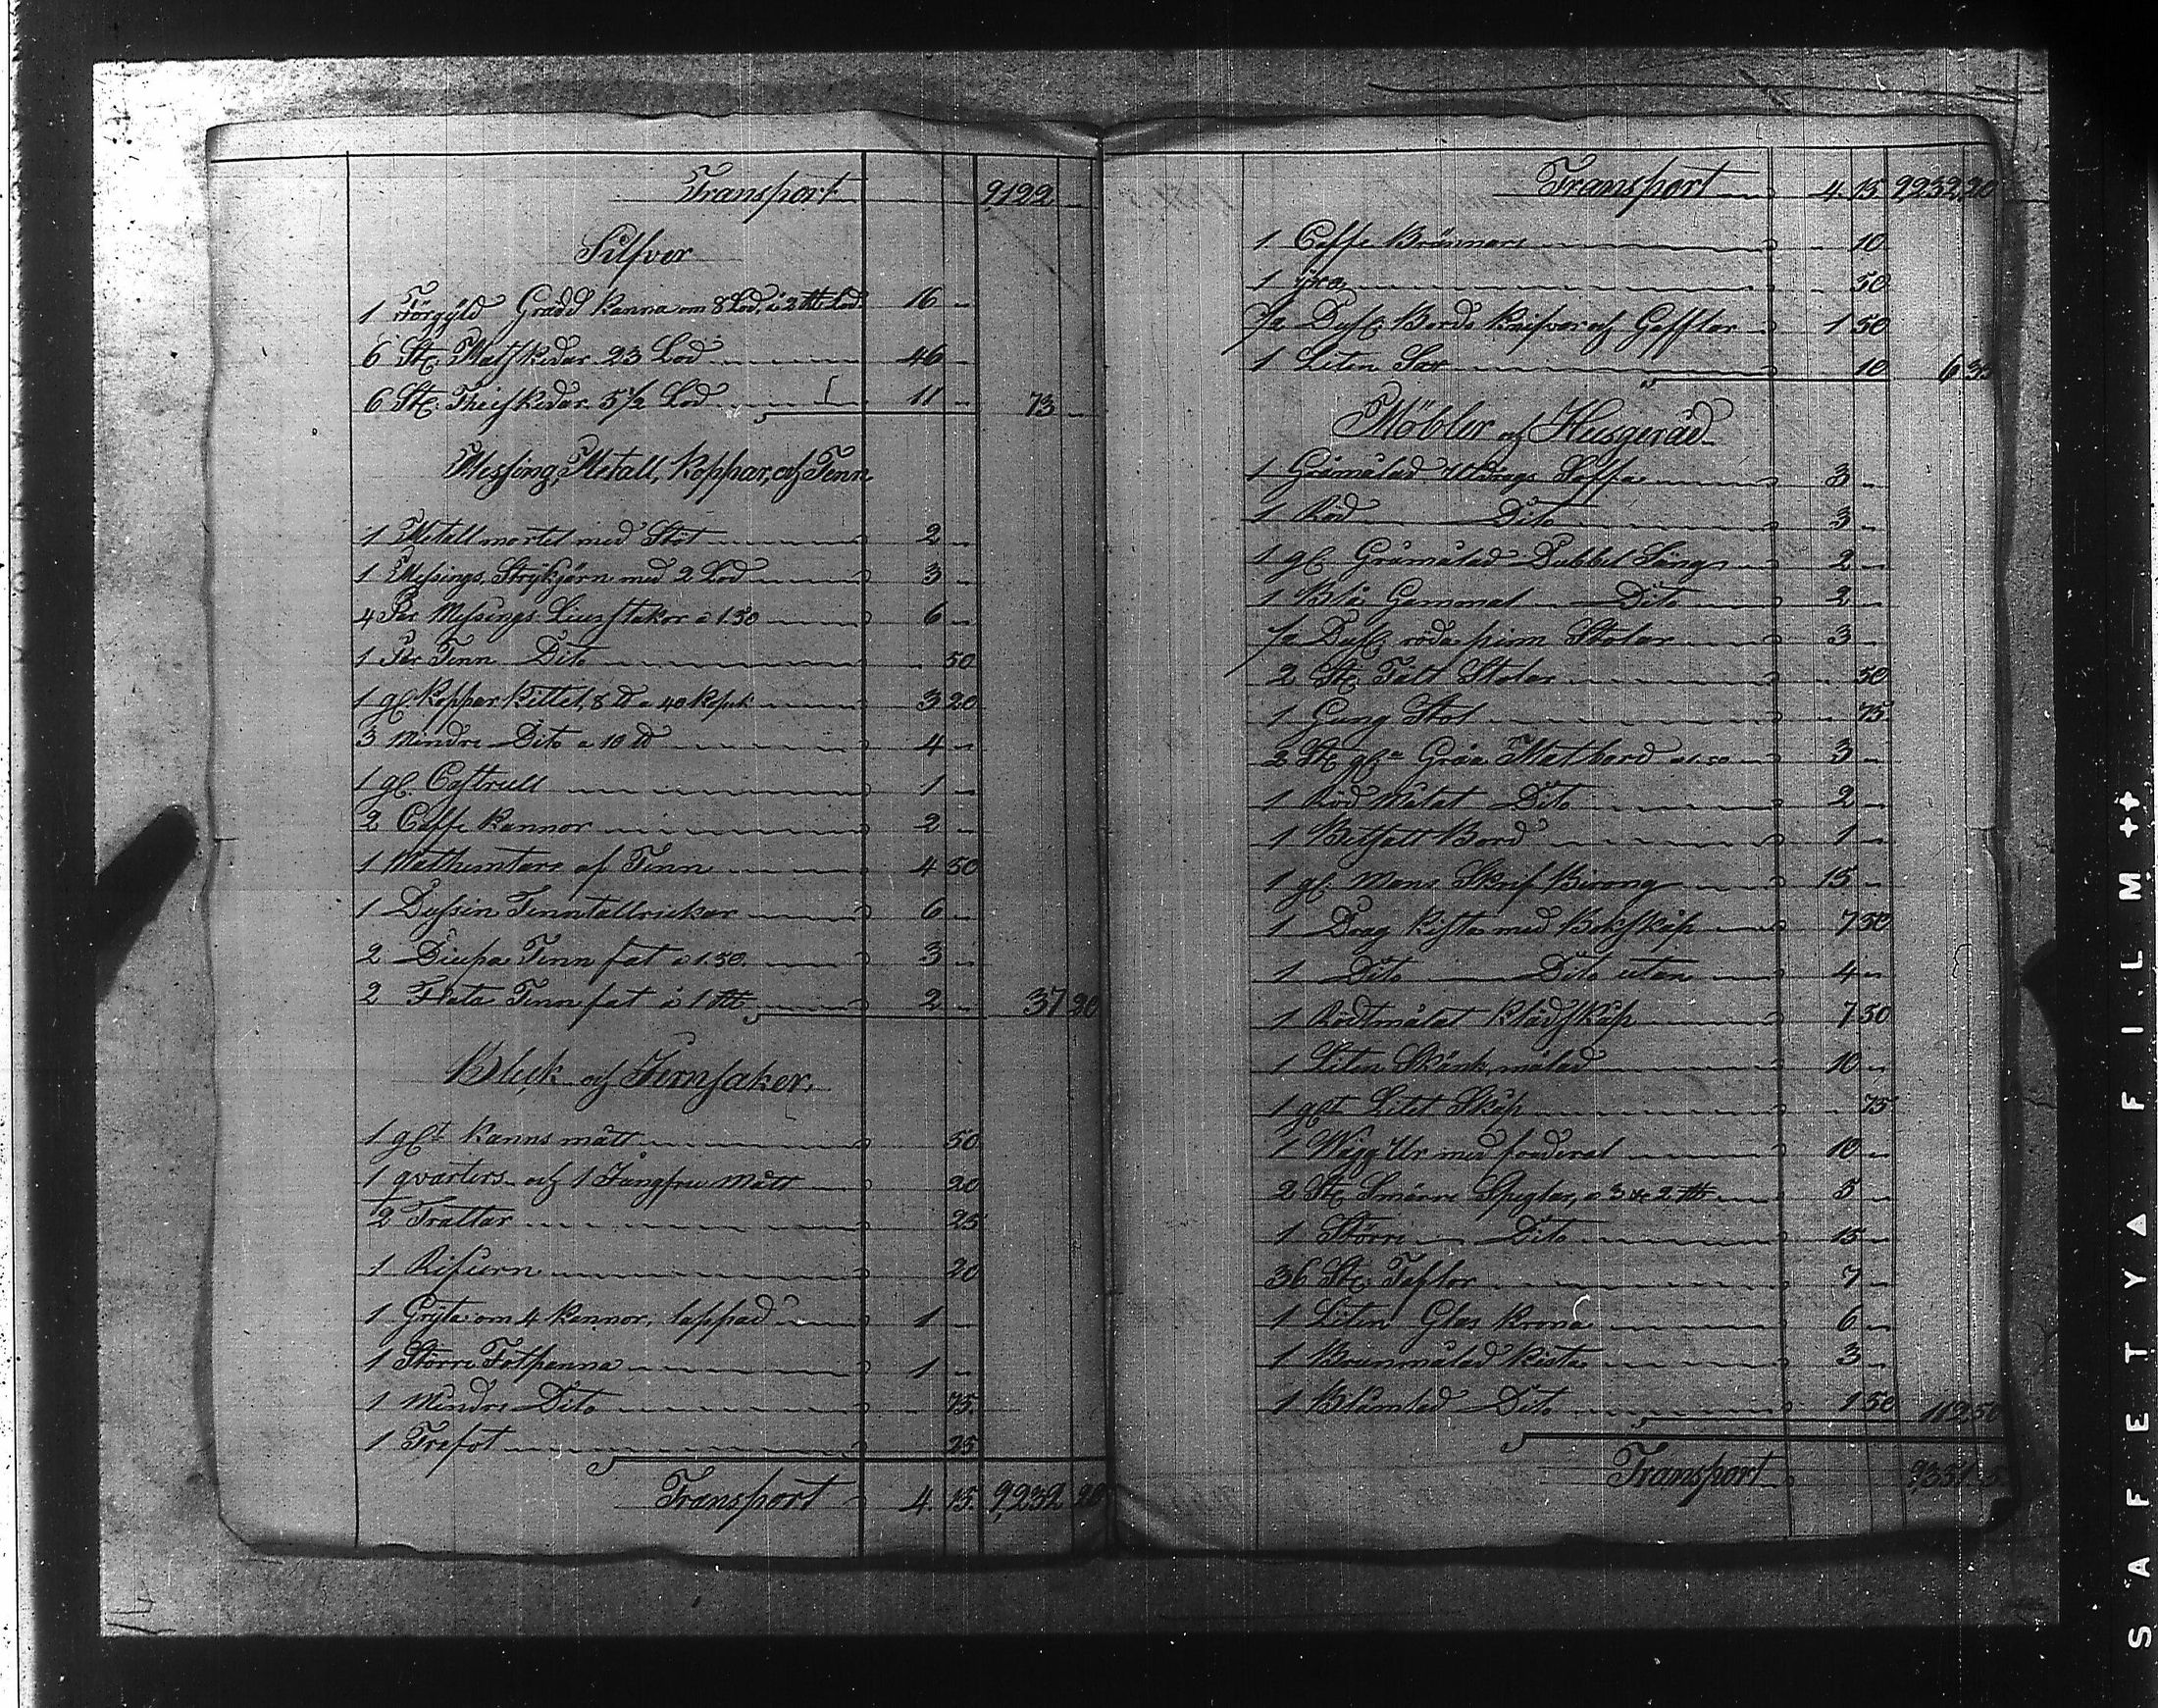 Transport 9,122 —
Silfver
1 Förgyld Grädd Kanna om 8 Lod, à 2 Lod 16 —
6 St. Matskedar 23 Lod 46 —
6 St. Theiskedar 5 1/2 Lod 11 — 73 —
Messing, Metall, Koppar, och Tenn
1 Metall mortel med Stöt 2 —
1 Messings Strykjärn med 2 Lod 3 —
4 Par Messings Liusstakar à 1.50 6 —
1 Par Tenn Dito 50
1 gl. Koppar Kittel, 8 ℔ a 40 Kopek 3 20
3 mindre Dito a 10 ℔ 4 —
1 gl. Castrull 1 —
2 Caffe Kannor 2 —
1 Mathemtare af Tenn 4 50
1 Dussin Tenntallrickar 6 —
2 Diupa Tenn fat à 1.50. 3 —
2 Flata Tenn fat à 1 2 — 37 20
Bleck och Jernsaker.
1 glt Kanns mått 50
1 qvarters och 1 Jungfru Mått 20
2 Trattar 25
1 Rifjern 20
1 Gryta om 4 Kannor, lappad 1 —
1 Större Fotpanna 1 —
1 Mindre Dito 75.
1 Trefot 25
Transport 4. 15. 9,232 20
Transport 4. 15. 9,232 20
1 Caffe Brännare 10
1 Yxa 50
1/2 Duss. Bords Knifvar och Gafflar 1 50
1 Liten Sax 10 6 35
Möbler och Husgeråd
1 Gråmålad Utdrags Soffa 3 —
1 Röd Dito 3 —
1 gl. Gråmålad Dubbel Säng 2 —
1 Blå Gammal Dito 2 —
1/2 Duss. röda pinn Stolar 3 —
2 St. Fält Stolar 50
1 Gung Stol 75
2 St. gla Gråa Matbord a 1.50 3 —
1 Röd Målat Dito 2 —
1 Bitfält Bord 1 —
1 gl. Mans Skrif Birong 15 —
1 Drag Kista med Bokskåp 7 50
1 Dito Dito utan 4 —
1 Rödtmålat Klädskåp 7 50
1 Liten Skänk, målad 10 —
1 glt Litet Skåp 75
1 Wägg Ur med foderal 10 —
2 St. Smärre Speglar, a 3 & 2 5 —
1 Större Dito 15 —
36 St. Taflor 7 —
1 Liten Glas Krona 6 —
1 Brunmålad Kista 3 —
1 Blåmlad Dito 1 50 112 50
Transport 9,351 5
SAFETY FILM